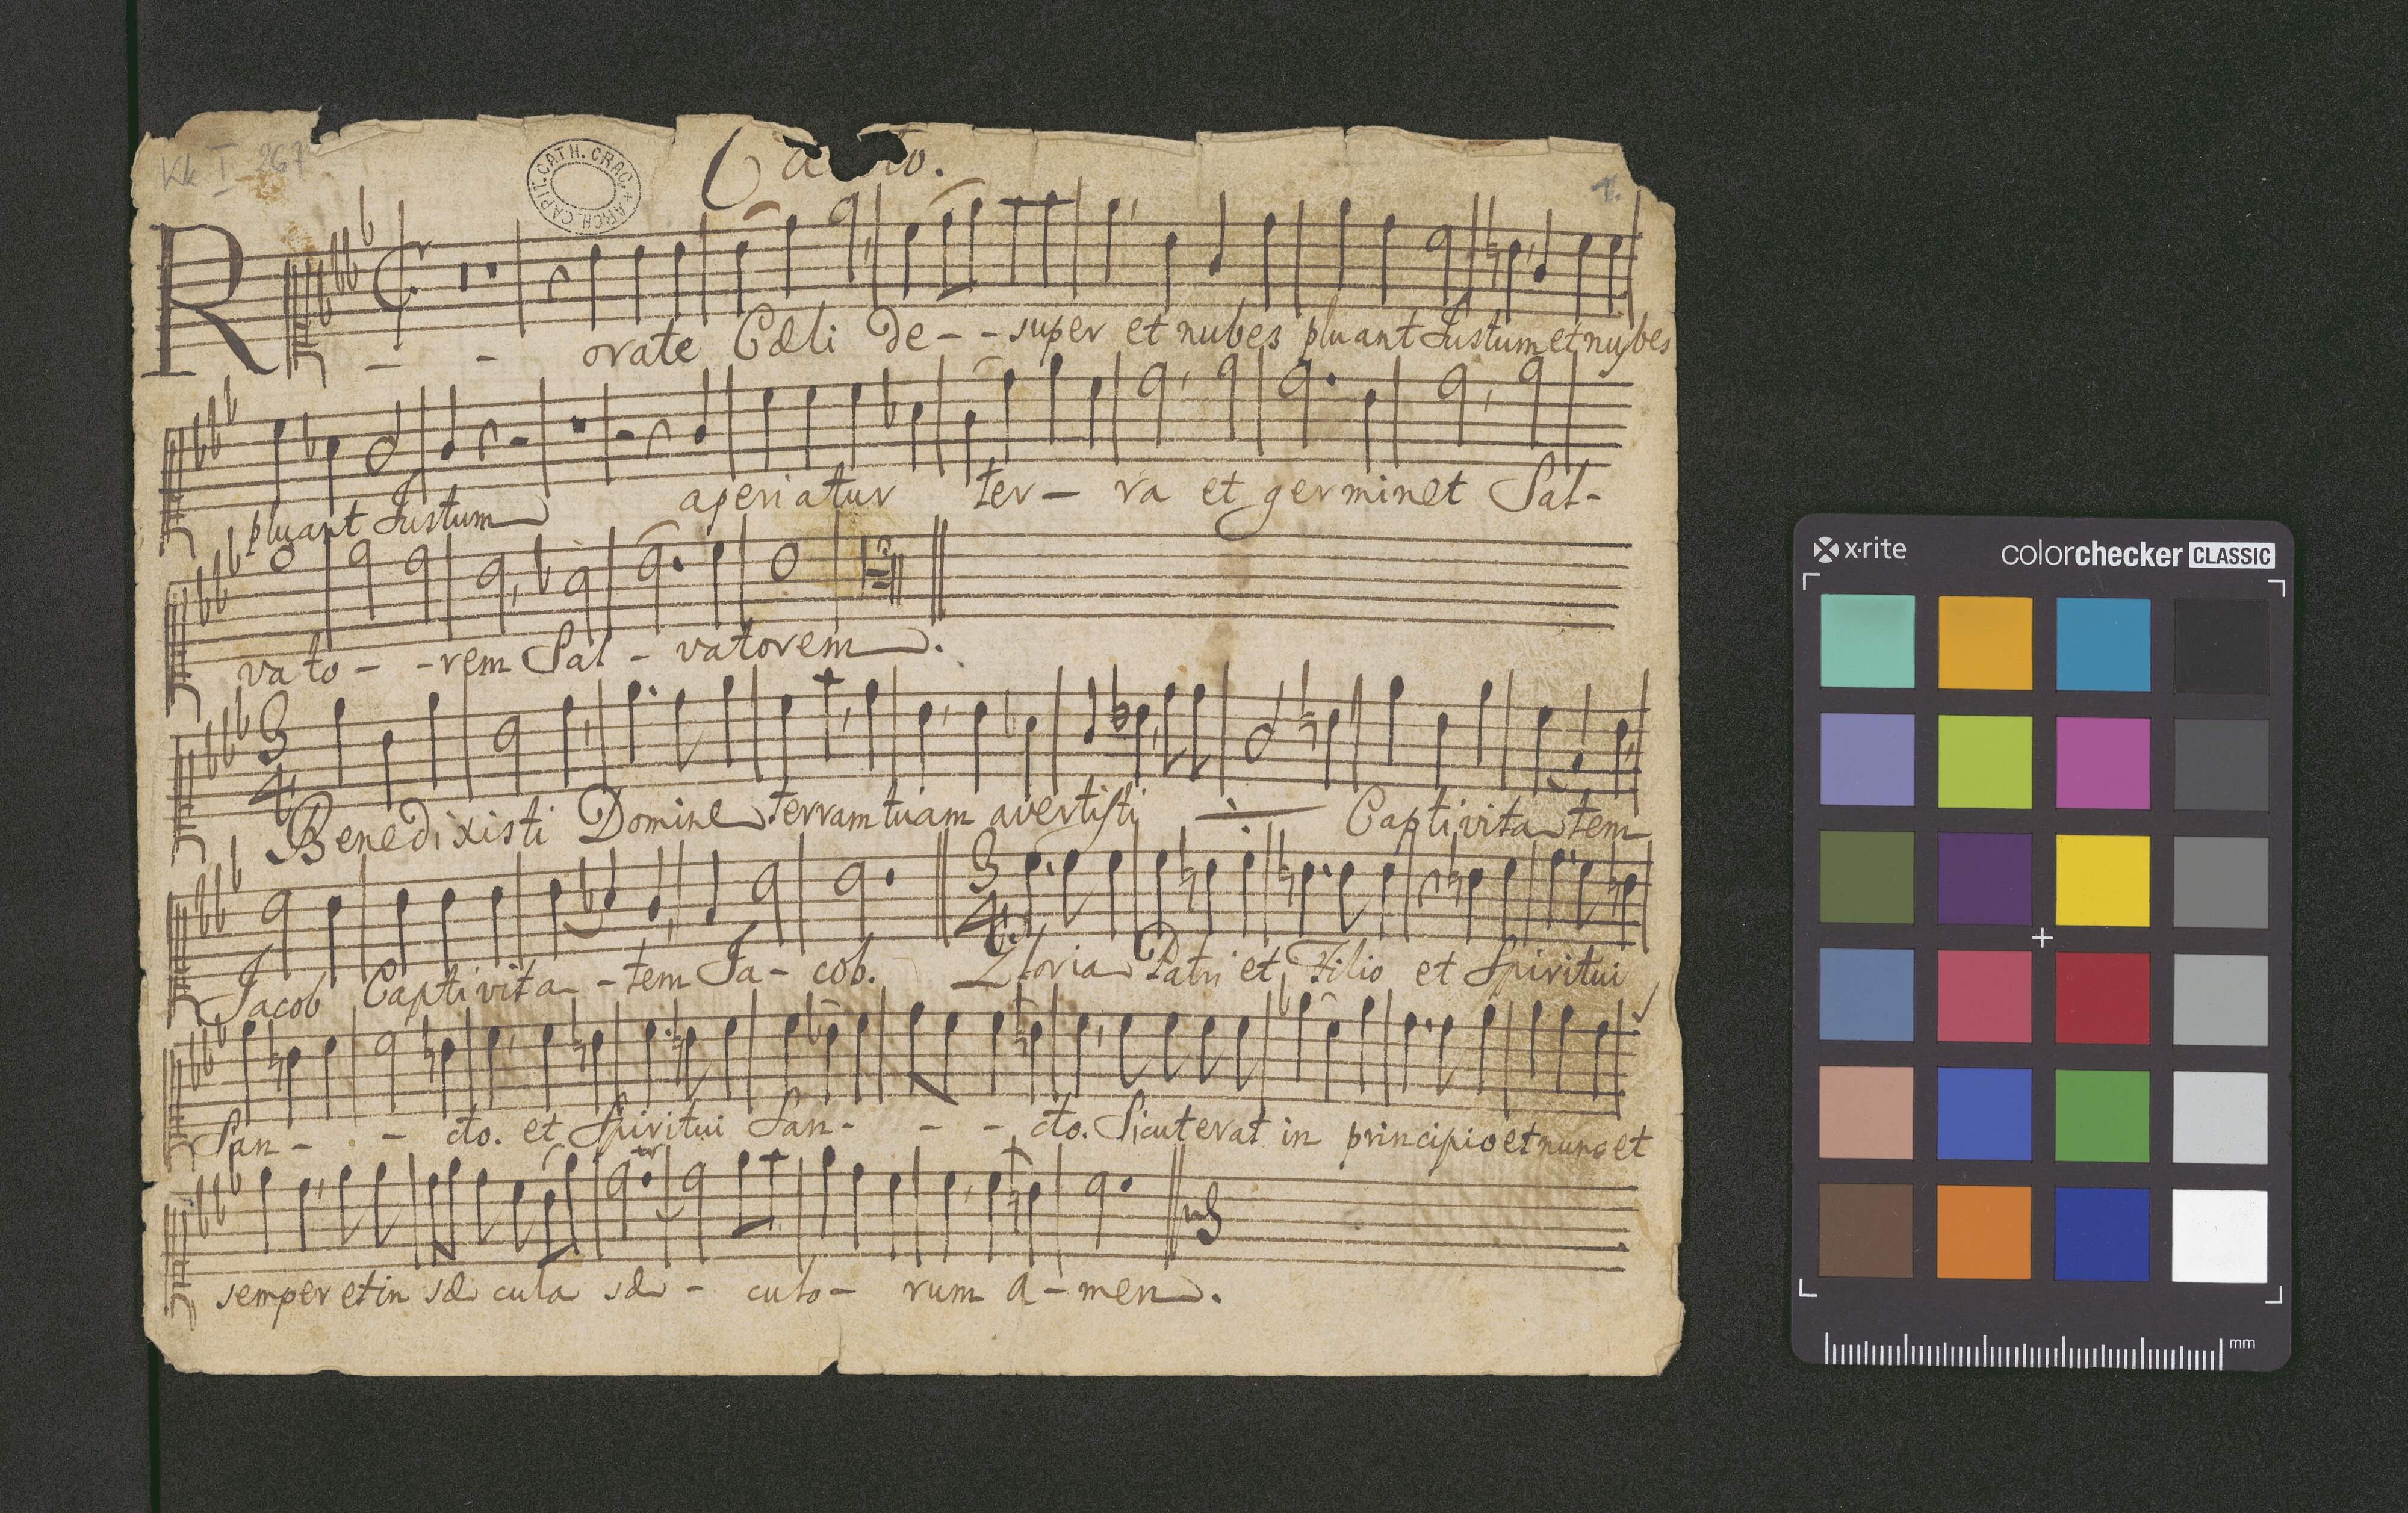 Kk I 267
CAPIT. CATH. CRAC. * ARCH.
1.
R - - orate Cæli de - - super et nubes pluant Justum et nubes
pluant Justum aperiatur ter - ra et germinet Sal-
vato - - rem Sal - vatorem.
3 4
Benedixisti Domine terram tuam avertisti Captivitatem
Jacob Captivita - tem Ja - cob. 3 4 Gloria Patri et Filio et Spiritui
San - - cto. et Spiritui San - - - cto. Sicut erat in principio et nunc et
tr
semper et in sæcula sæ - culo - rum a - men.
x·rite colorchecker CLASSIC
mm